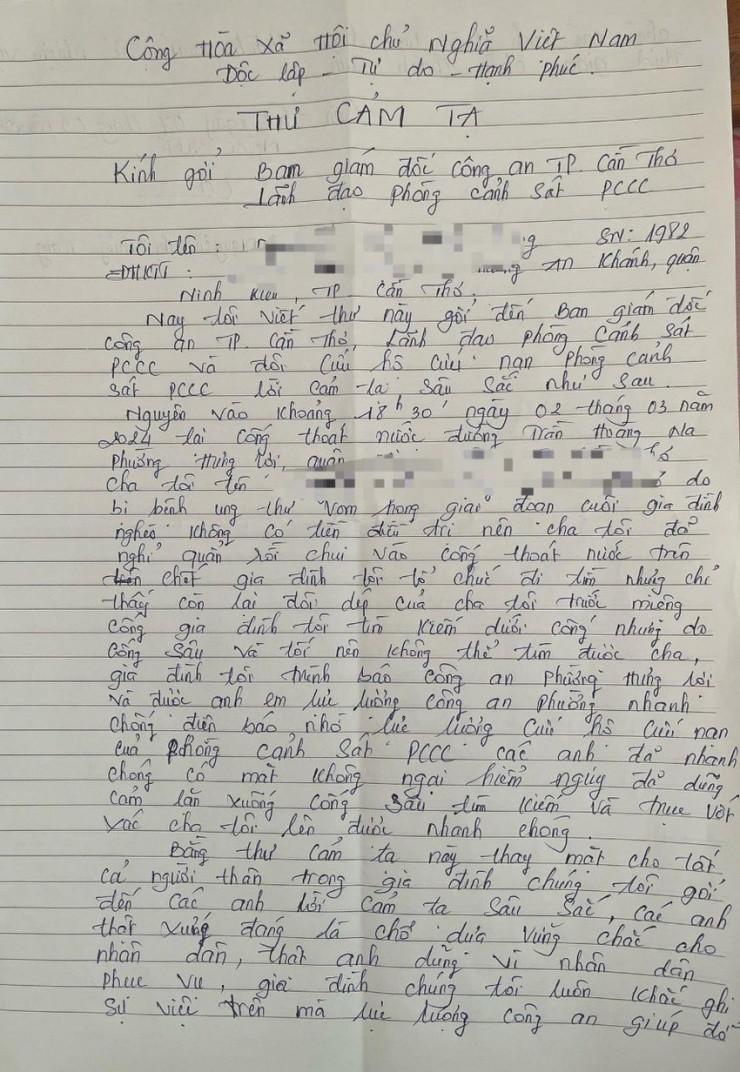 Cộng Hòa Xã Hội chủ Nghĩa Việt Nam
Độc lập - Tự do - Hạnh phúc.
THƯ CẢM TẠ
Kính gởi Ban giám đốc Công an TP. Cần Thơ
Lãnh đạo phòng cảnh sát PCCC
Tôi tên : SN: 1982
ĐKTT : An Khánh, quận
Ninh Kiều, TP. Cần Thơ.
Nay tôi viết thư này gởi đến Ban giám đốc
Công an TP. Cần Thơ, Lãnh đạo phòng Cảnh sát
PCCC và đội Cứu hộ cứu nạn phòng cảnh
sát PCCC lời cảm tạ sâu sắc như sau.
Nguyên vào khoảng 18h30' ngày 02 tháng 03 năm
2024 tại cống thoát nước đường Trần Hoàng Na
phường Hưng lợi, quận
cha tôi tên do
bị bệnh ung thư vòm họng giai đoạn cuối gia đình
nghèo không có tiền điều trị nên cha tôi đã
nghỉ quẩn rồi chui vào cống thoát nước trên
chết gia đình tôi tổ chức đi tìm nhưng chỉ
thấy còn lại đôi dép của cha tôi trước miệng
cống gia đình tôi tìm kiếm dưới cống nhưng do
cống sâu và tối nên không thể tìm được cha,
gia đình tôi trình báo công an phường Hưng lợi
và được anh em lực lượng công an phường nhanh
chống điện báo nhờ lực lượng cứu hộ cứu nạn
của phòng cảnh sát PCCC các anh đã nhanh
chống có mặt không ngại hiểm ngúy đã dũng
cảm lặn xuống cống sâu tìm kiếm và trục vớt
xác cha tôi lên được nhanh chống.
Bằng thư cảm tạ này thay mặt cho tất
cả người thân trong gia đình chúng tôi gởi
đến các anh lời cảm tạ sâu sắc, các anh
thật xứng đáng là chổ dựa vững chắc cho
nhân dân, thật anh dũng vì nhân dân
phục vụ, gia đình chúng tôi luôn khắc ghi
sự việc trên mà lực lượng công an giúp đỡ